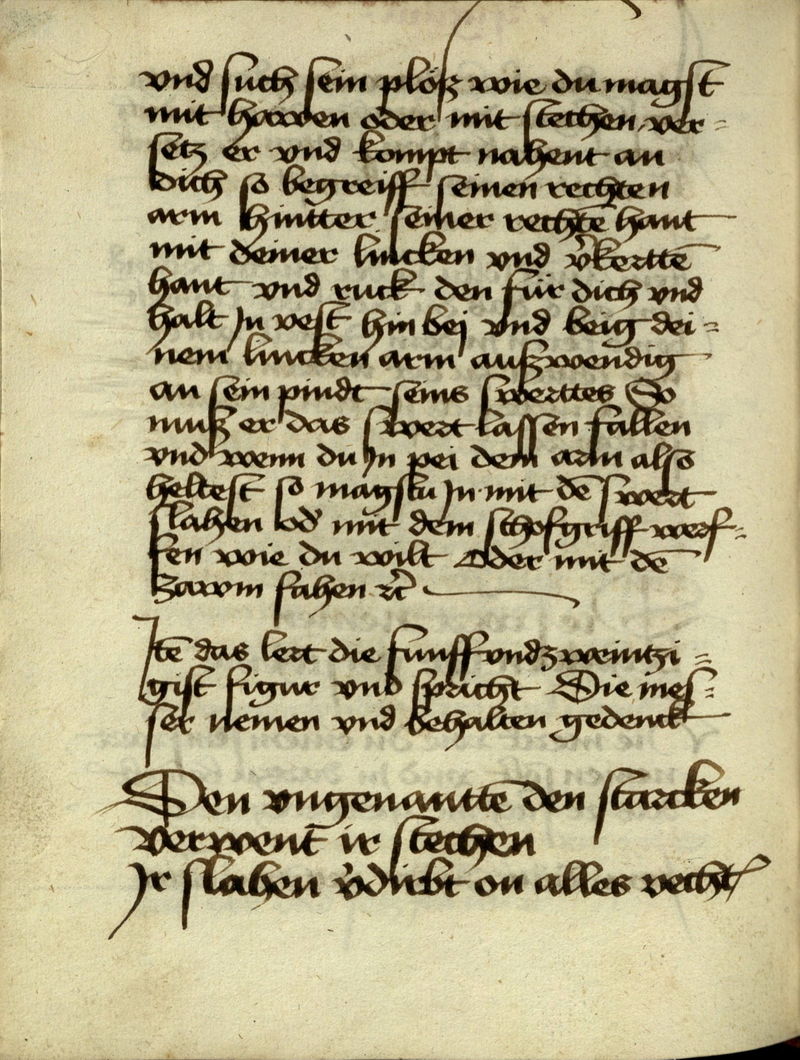 vnd such sein plöß wie du magst
mit hawen oder mit stechen, ver=
setz er vnd kompt nahent an
dich so begreiff seinen rechten
arm hintter seiner rechtē hant
mit deiner lincken vnd v̾kerttē
hant vnd ruck den für dich vnd
halt Jn vest hin bej vnd beig dei=
nem lincken arm außwendig
an sein pindt seins swerttes So
muß er das swert lassen fallen
vnd wenn du Jn pei dem arm also
heltest so magstu Jn mit dē swert
slahen od̾ mit dem schofgriff werf=
fen wie du wilt Oder mit dē
zawm fahen ⁊c̄
Jtē das lert die funffvndzweintzi=
gist figur vnd spricht Die mes=
ser nemen vnd behalten gedenck
Den vngenanttē den starcken
verwent̄ ir stechen
Jr slahen v̾dirbt on alles vecht̄